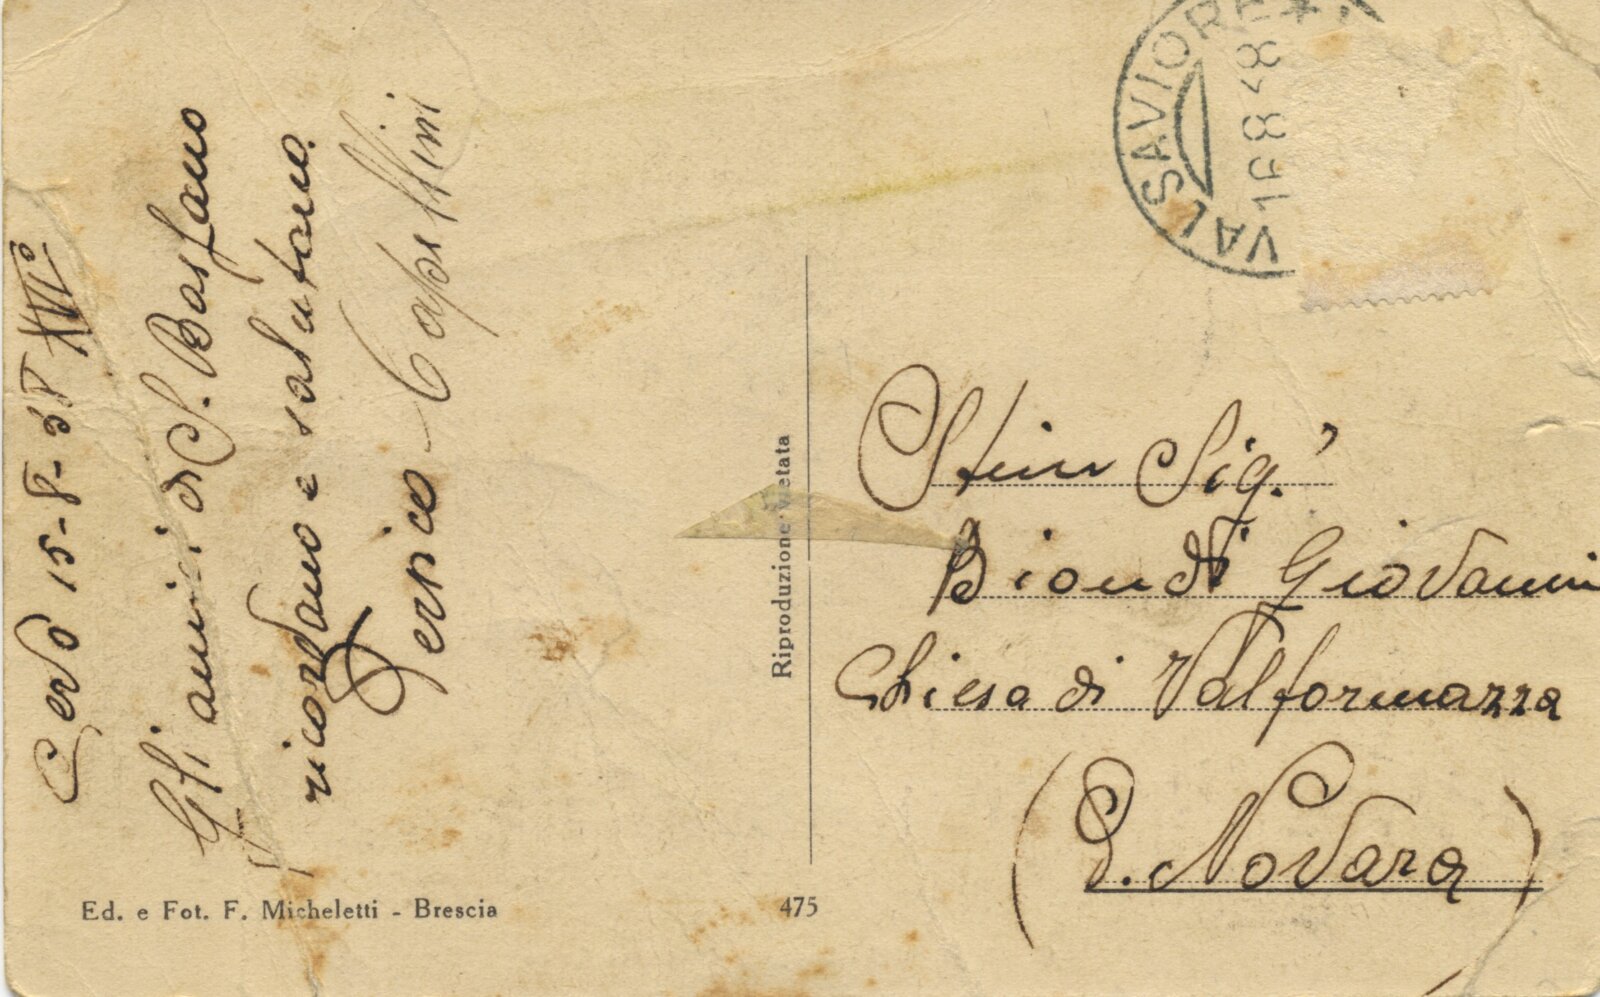 Cevo 15-8-38 XVI°
Gli amici di S. Bastano
ricordano e salutano.
Persico Capsttini
VALSAVIORE
16 8 38
Riproduzione vietata
Sig.
Biondi Giovanni
Chiesa di Valformazza
(P. Novara)
Ed. e Fot. F. Micheletti - Brescia
475